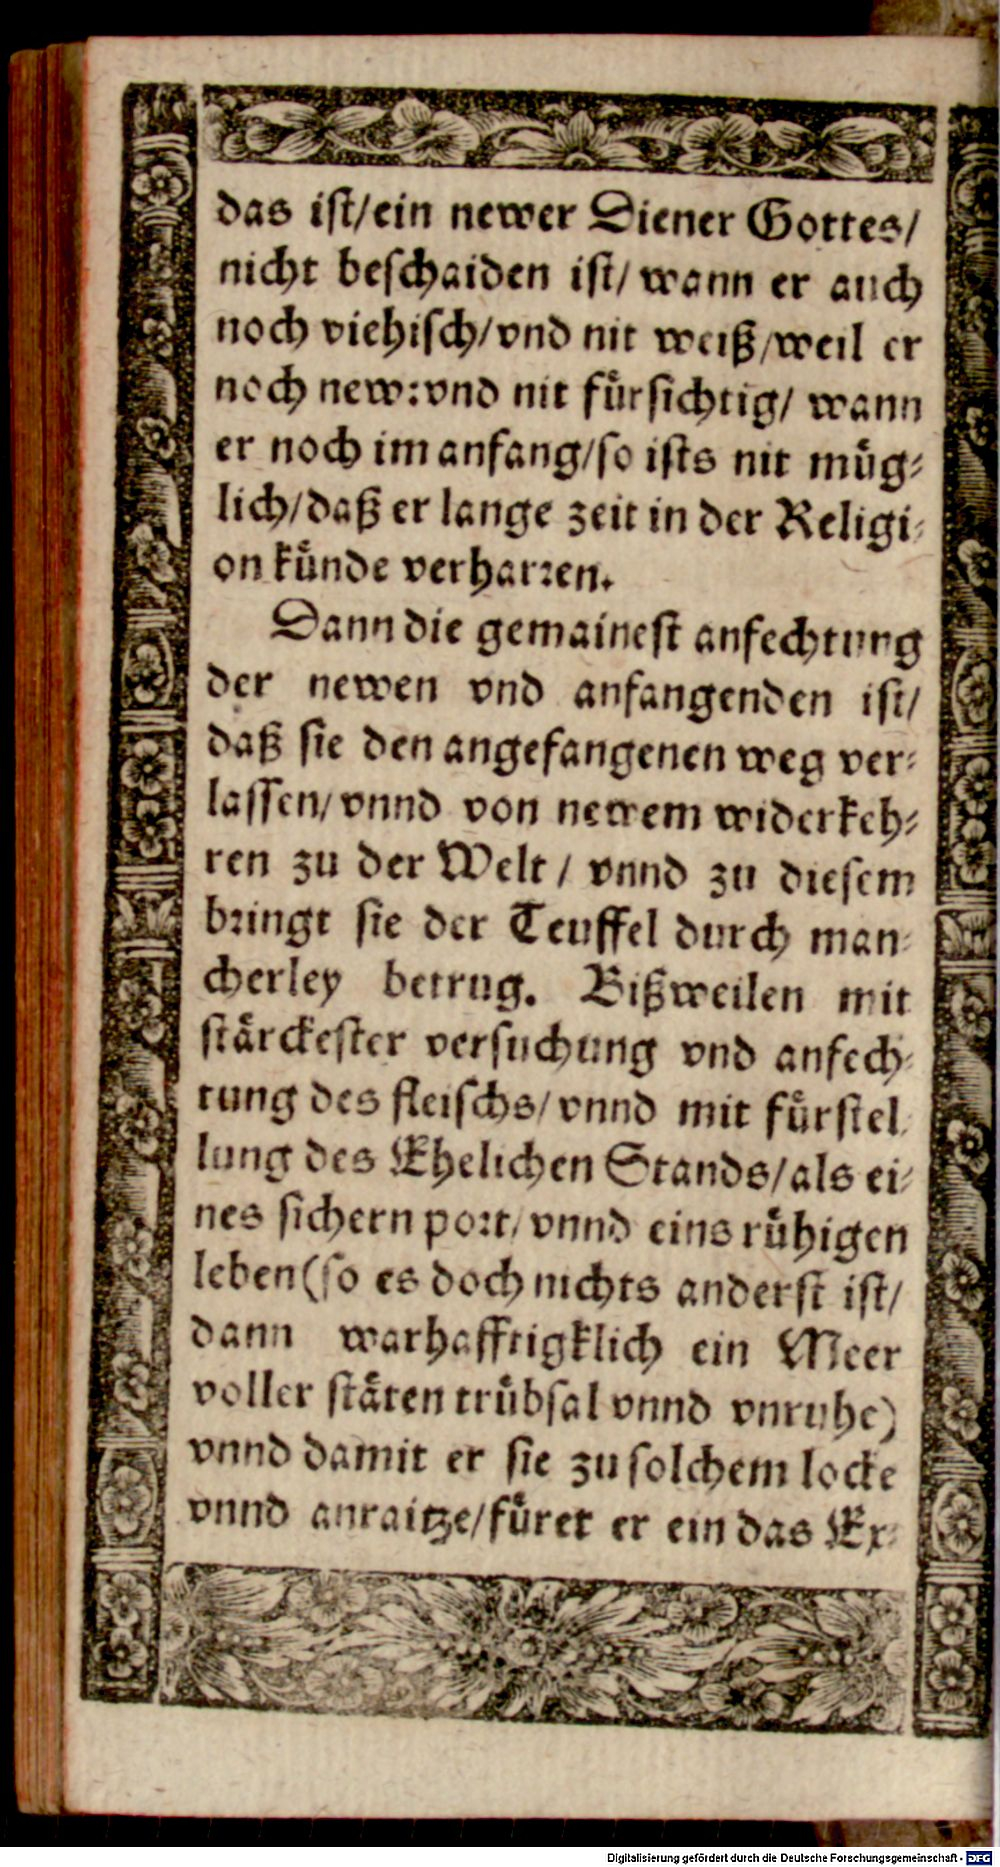 das iſt/ein newer Diener Gottes/
nicht beſchaiden iſt/ wann er auch
noch viehiſch/vnd nit weiß/weil er
noch new:vnd nit fuͤrſichtig/ wann
er noch im anfang/ſo iſts nit muͤg⸗
lich/daß er lange zeit in der Religi⸗
on kuͤnde verharꝛen.
Dann die gemaineſt anfechtung
der newen vnd anfangenden iſt/
daß ſie den angefangenen weg ver⸗
laſſen/ vnnd von newem widerkeh⸗
ren zu der Welt / vnnd zu dieſem
bꝛingt ſie der Teuffel durch man⸗
cherley betrug. Bißweilen mit
ſtaͤrckeſter verſuchung vnd anfech⸗
tung des fleiſchs/ vnnd mit fuͤrſtel⸗
lung des Ehelichen Stands/als ei⸗
nes ſichern poꝛt/ vnnd eins ruͤhigen
leben(ſo es doch nichts anderſt iſt/
dann warhafftigklich ein Meer
voller ſtaͤten truͤbſal vnnd vnruhe)
vnnd damit er ſie zu ſolchem locke
vnnd anraitze/fuͤret er ein das Ex⸗
Digitalisierung gefördert durch die Deutsche Forschungsgemeinschaft - DFG